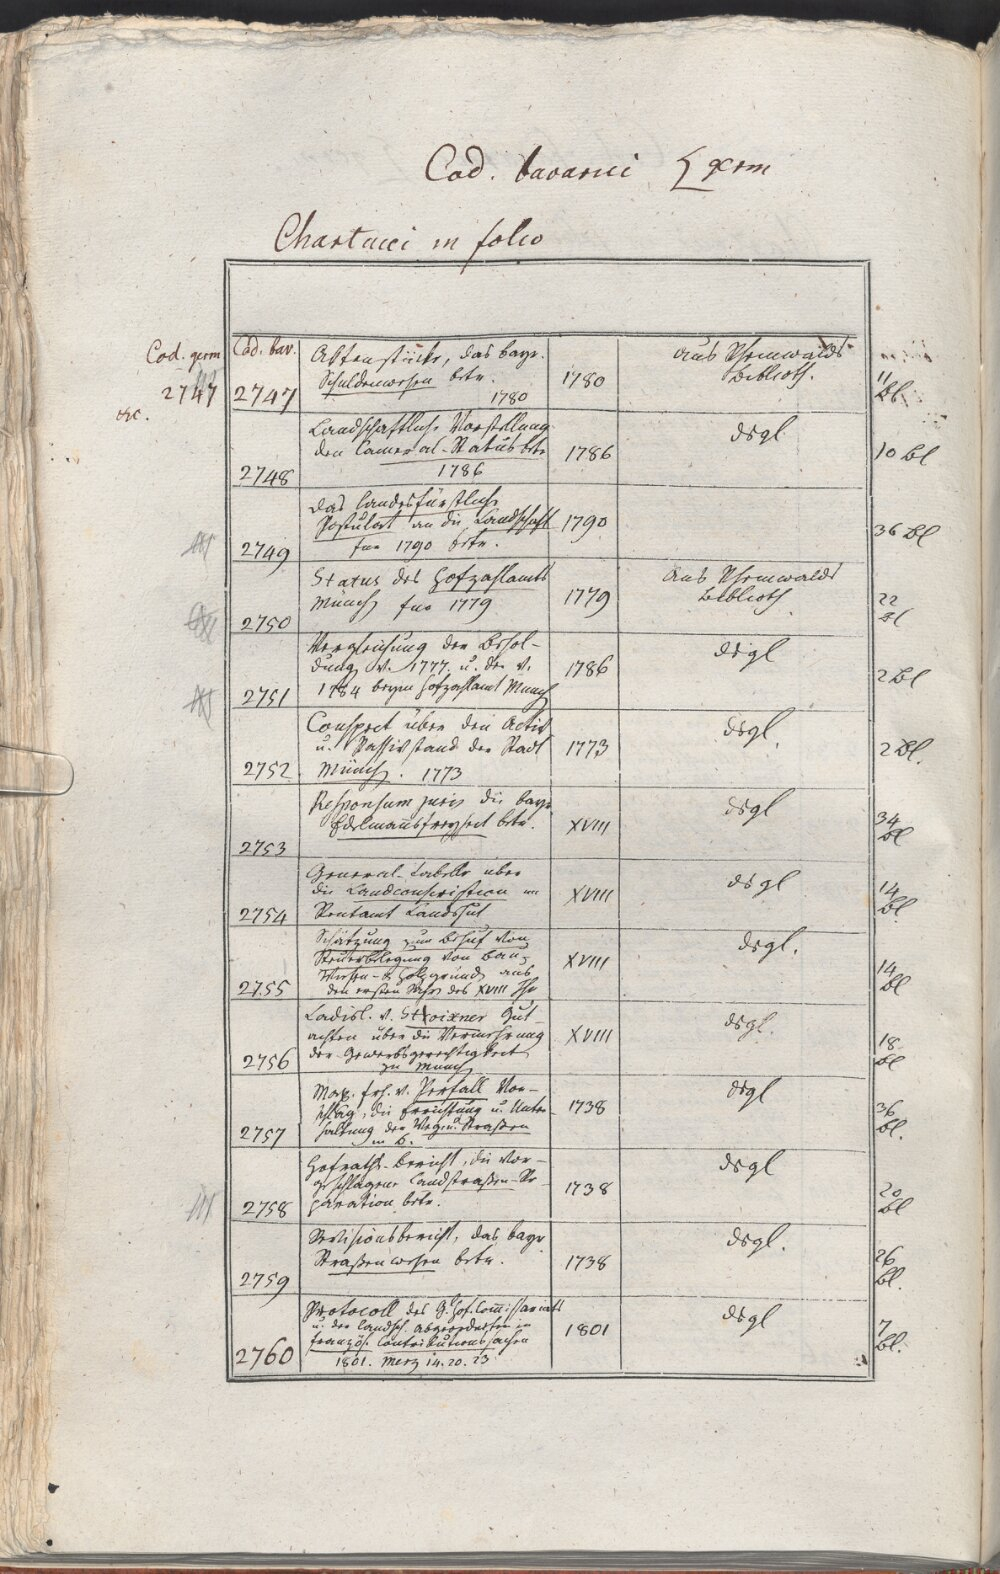 Cod. bavarici germ
Chartacei in folio
Cod. germ
2747
etc.
Cod. bav.
2747
Aktenstücke, das bayr.
Schuldenwesen betr.
1780
1780
aus Thumwalds
Biblioth.
11
Bl.
2748
Landschaftliche Vorstellung
den Cameral-Status betr
1786
1786
dsgl
10 Bl
2749
das landesfürstliche
Postulat an die Landschaft
für 1790 betr.
1790
36 Bl
2750
Status des Hofzahlamts
Münch für 1779
1779
aus Thumwalds
Biblioth
22
Bl
2751
Vergleichung der Besol-
dung v. 1777, u. der v.
1784 beym Hofzahlamt Münch
1786
dsgl
2 Bl
2752
Conspect über den Activ
u. Passivstand der Stadt
Münch. 1773
1773
dsgl.
2 Bl.
2753
Responsum juris die bayr
Edelmannsfreyheit betr.
XVIII
dsgl
34
Bl
2754
General-Tabelle über
die Landconscription im
Rentamt Landshut
XVIII
dsgl
14
Bl
2755
Schätzung zum Behuf von
Steuerbelegung von Bau,
Wiesen- & Holzgründ aus
den ersten Jahr des XVIII Jh
XVIII
dsgl.
14
Bl
2756
Ladisl. v. Stoixner Gut-
achten über die Vermehrung
der Gewerbsgerechtigkeit
zu Münch
XVIII
dsgl.
18
Bl
2757
Max. frh. v. Perfall Vor-
schlag, die Errichtung u. Unter
haltung der Weg u. Straßen
in B.
1738
dsgl
36
Bl.
2758
Hofraths-Bericht, die vor-
geschlagene Landstraßen-Re-
paration betr.
1738
dsgl
20
Bl
2759
Revisionsbericht, das bayr
Straßenwesen betr.
1738
dsgl.
26
Bl.
2760
Protocoll des G. Hof. Commissariats
u. der landsch. Abgeordneten in
französ. Contributionssachen
1801. Merz 14. 20. 23
1801
dsgl
7
Bl.